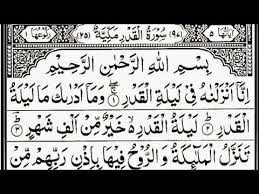 اٰيَاتُهَا ٥ (٩٧) سُوْرَةُ الْقَدْرِ مَكِّيَّةٌ (٢٥) رُكُوْعُهَا ١
بِسْمِ اللّٰهِ الرَّحْمٰنِ الرَّحِيْمِ
اِنَّاۤ اَنْزَلْنٰهُ فِيْ لَيْلَةِ الْقَدْرِ ۝١ وَمَاۤ اَدْرٰىكَ مَا لَيْلَةُ
الْقَدْرِ ۝٢ لَيْلَةُ الْقَدْرِ ۙ خَيْرٌ مِّنْ اَلْفِ شَهْرٍ ۝٣
تَنَزَّلُ الْمَلٰٓئِكَةُ وَالرُّوْحُ فِيْهَا بِاِذْنِ رَبِّهِمْ مِّنْ